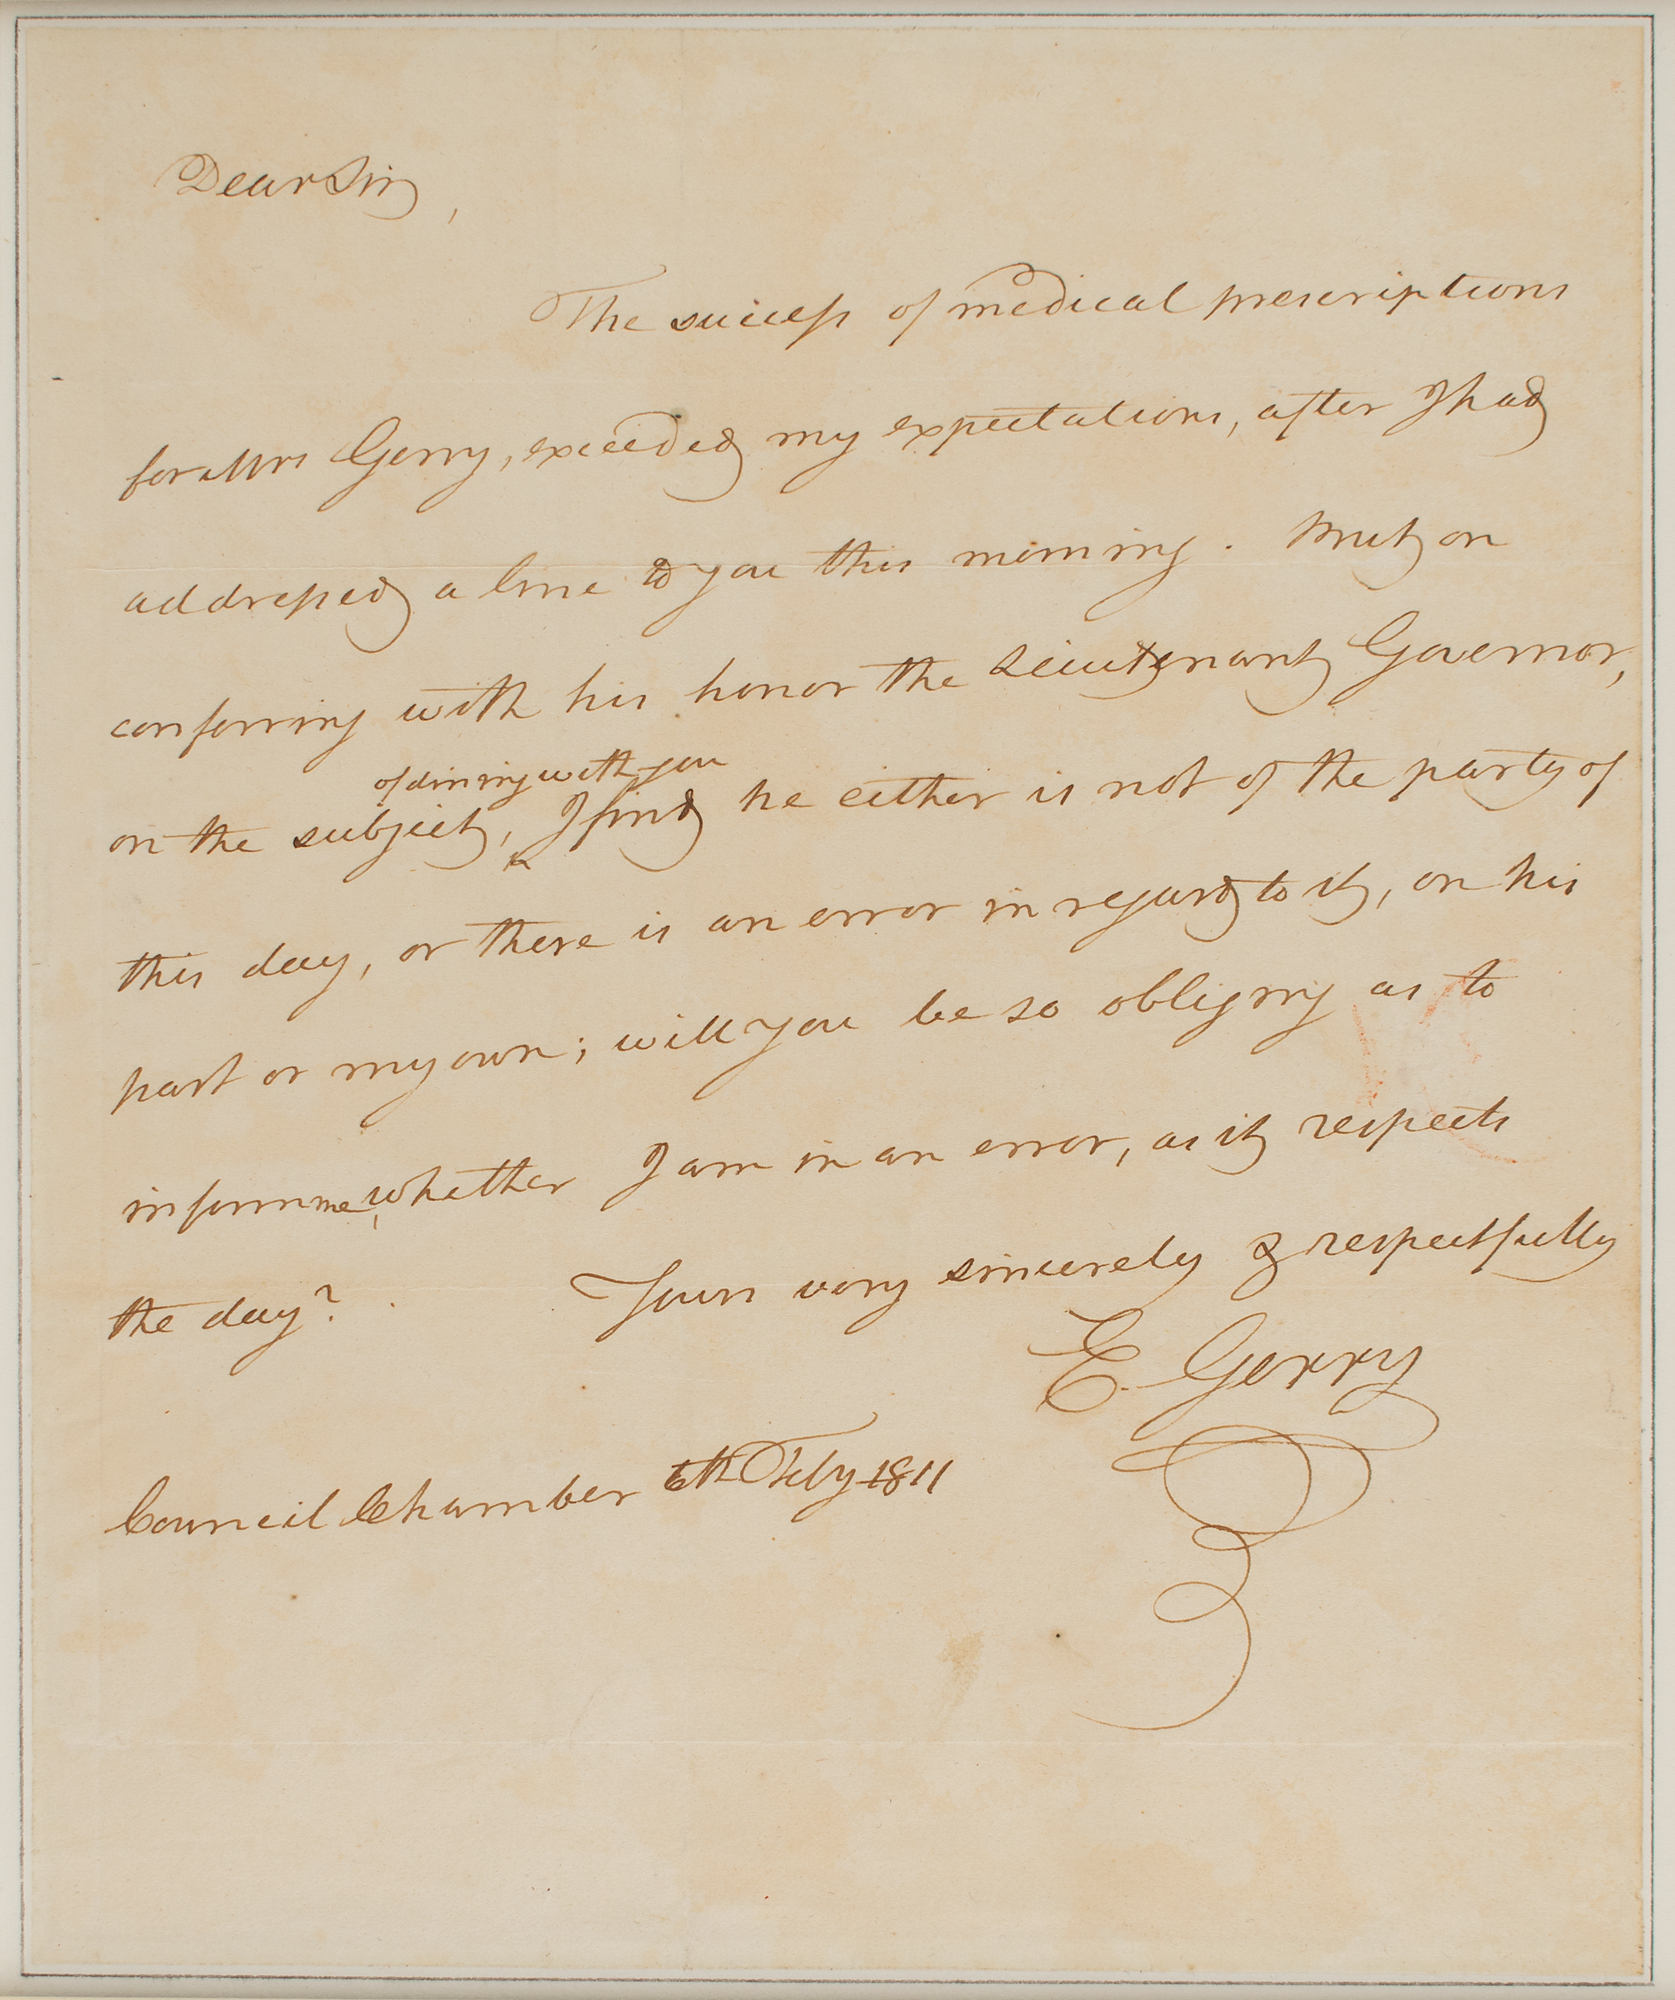 Dear Sir,
The success of medical prescriptions
for Mrs Gerry, exceeded my expectations, after I had
addressed a line to you this morning. But on
conferring with his honor the Lieutenant Governor,
of dining with you
on the subject, I find he either is not of the party of
this day, or there is an error in regard to it, on his
part or my own; will you be so obliging as to
inform me, whether I am in an error, as it respects
the day? Yours very sincerely & respectfully
E. Gerry
Council Chamber 6th Feby 1811